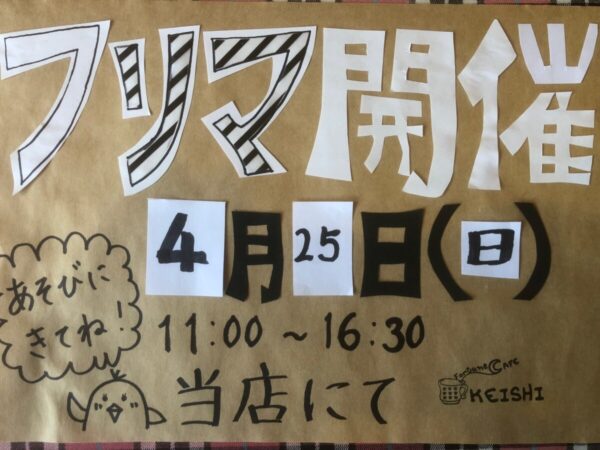 フリマ開催
4月25日(日)
あそびに
きてね!
11:00～16:30
当店にて
Fortune Cafe
KEISHI